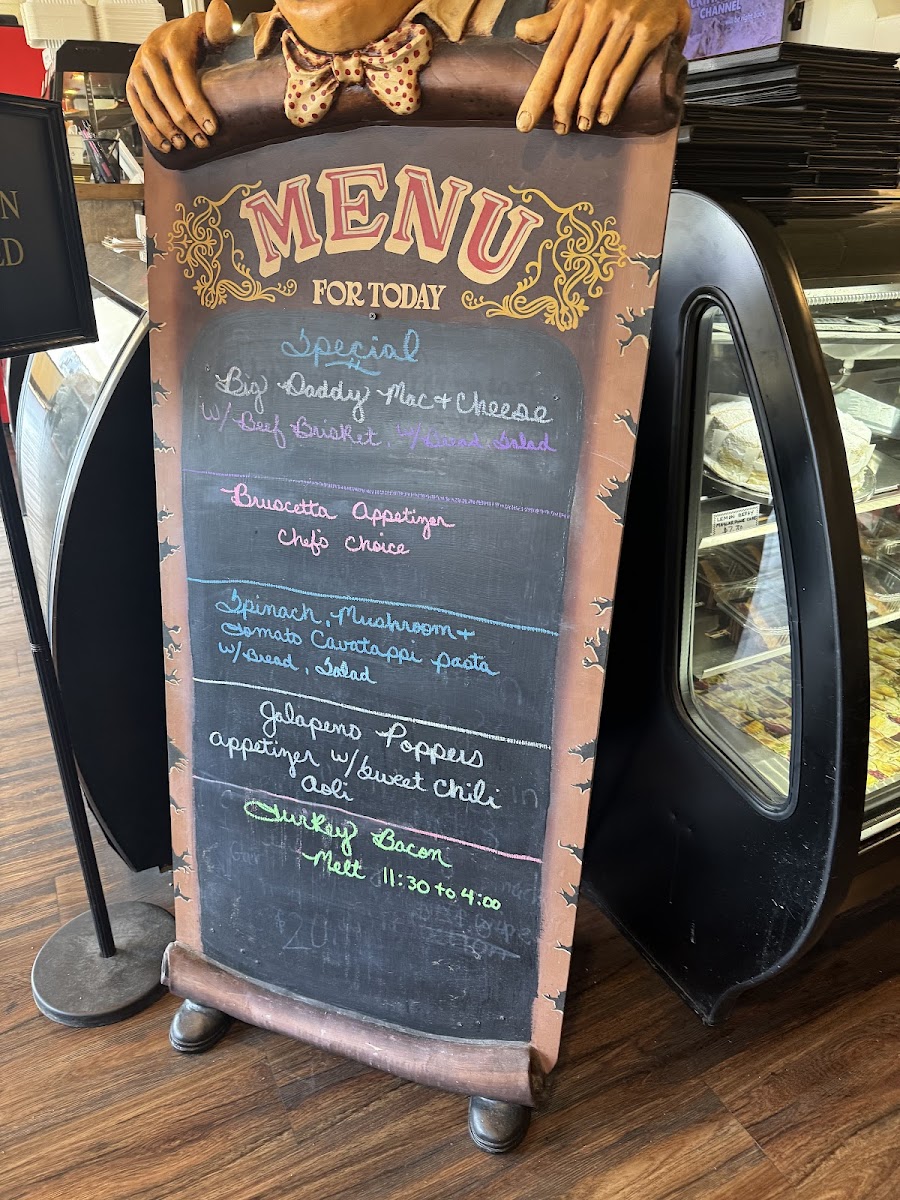 CHANNEL
N
LD
MENU
FOR TODAY
Special
Big Daddy Mac + Cheese
W/ Beef Brisket, W/ Bread Salad
Bruscetta Appetizer
Chef's Choice
Spinach, Mushroom +
Tomato Cavatappi pasta
w/ Bread, Salad
Jalapeno Poppers
appetizer w/ Sweet Chili
Aoli
Turkey Bacon
Melt 11:30 to 4:00
$20.
LEMON BERRY
MASCARPONE CAKE
$7.50